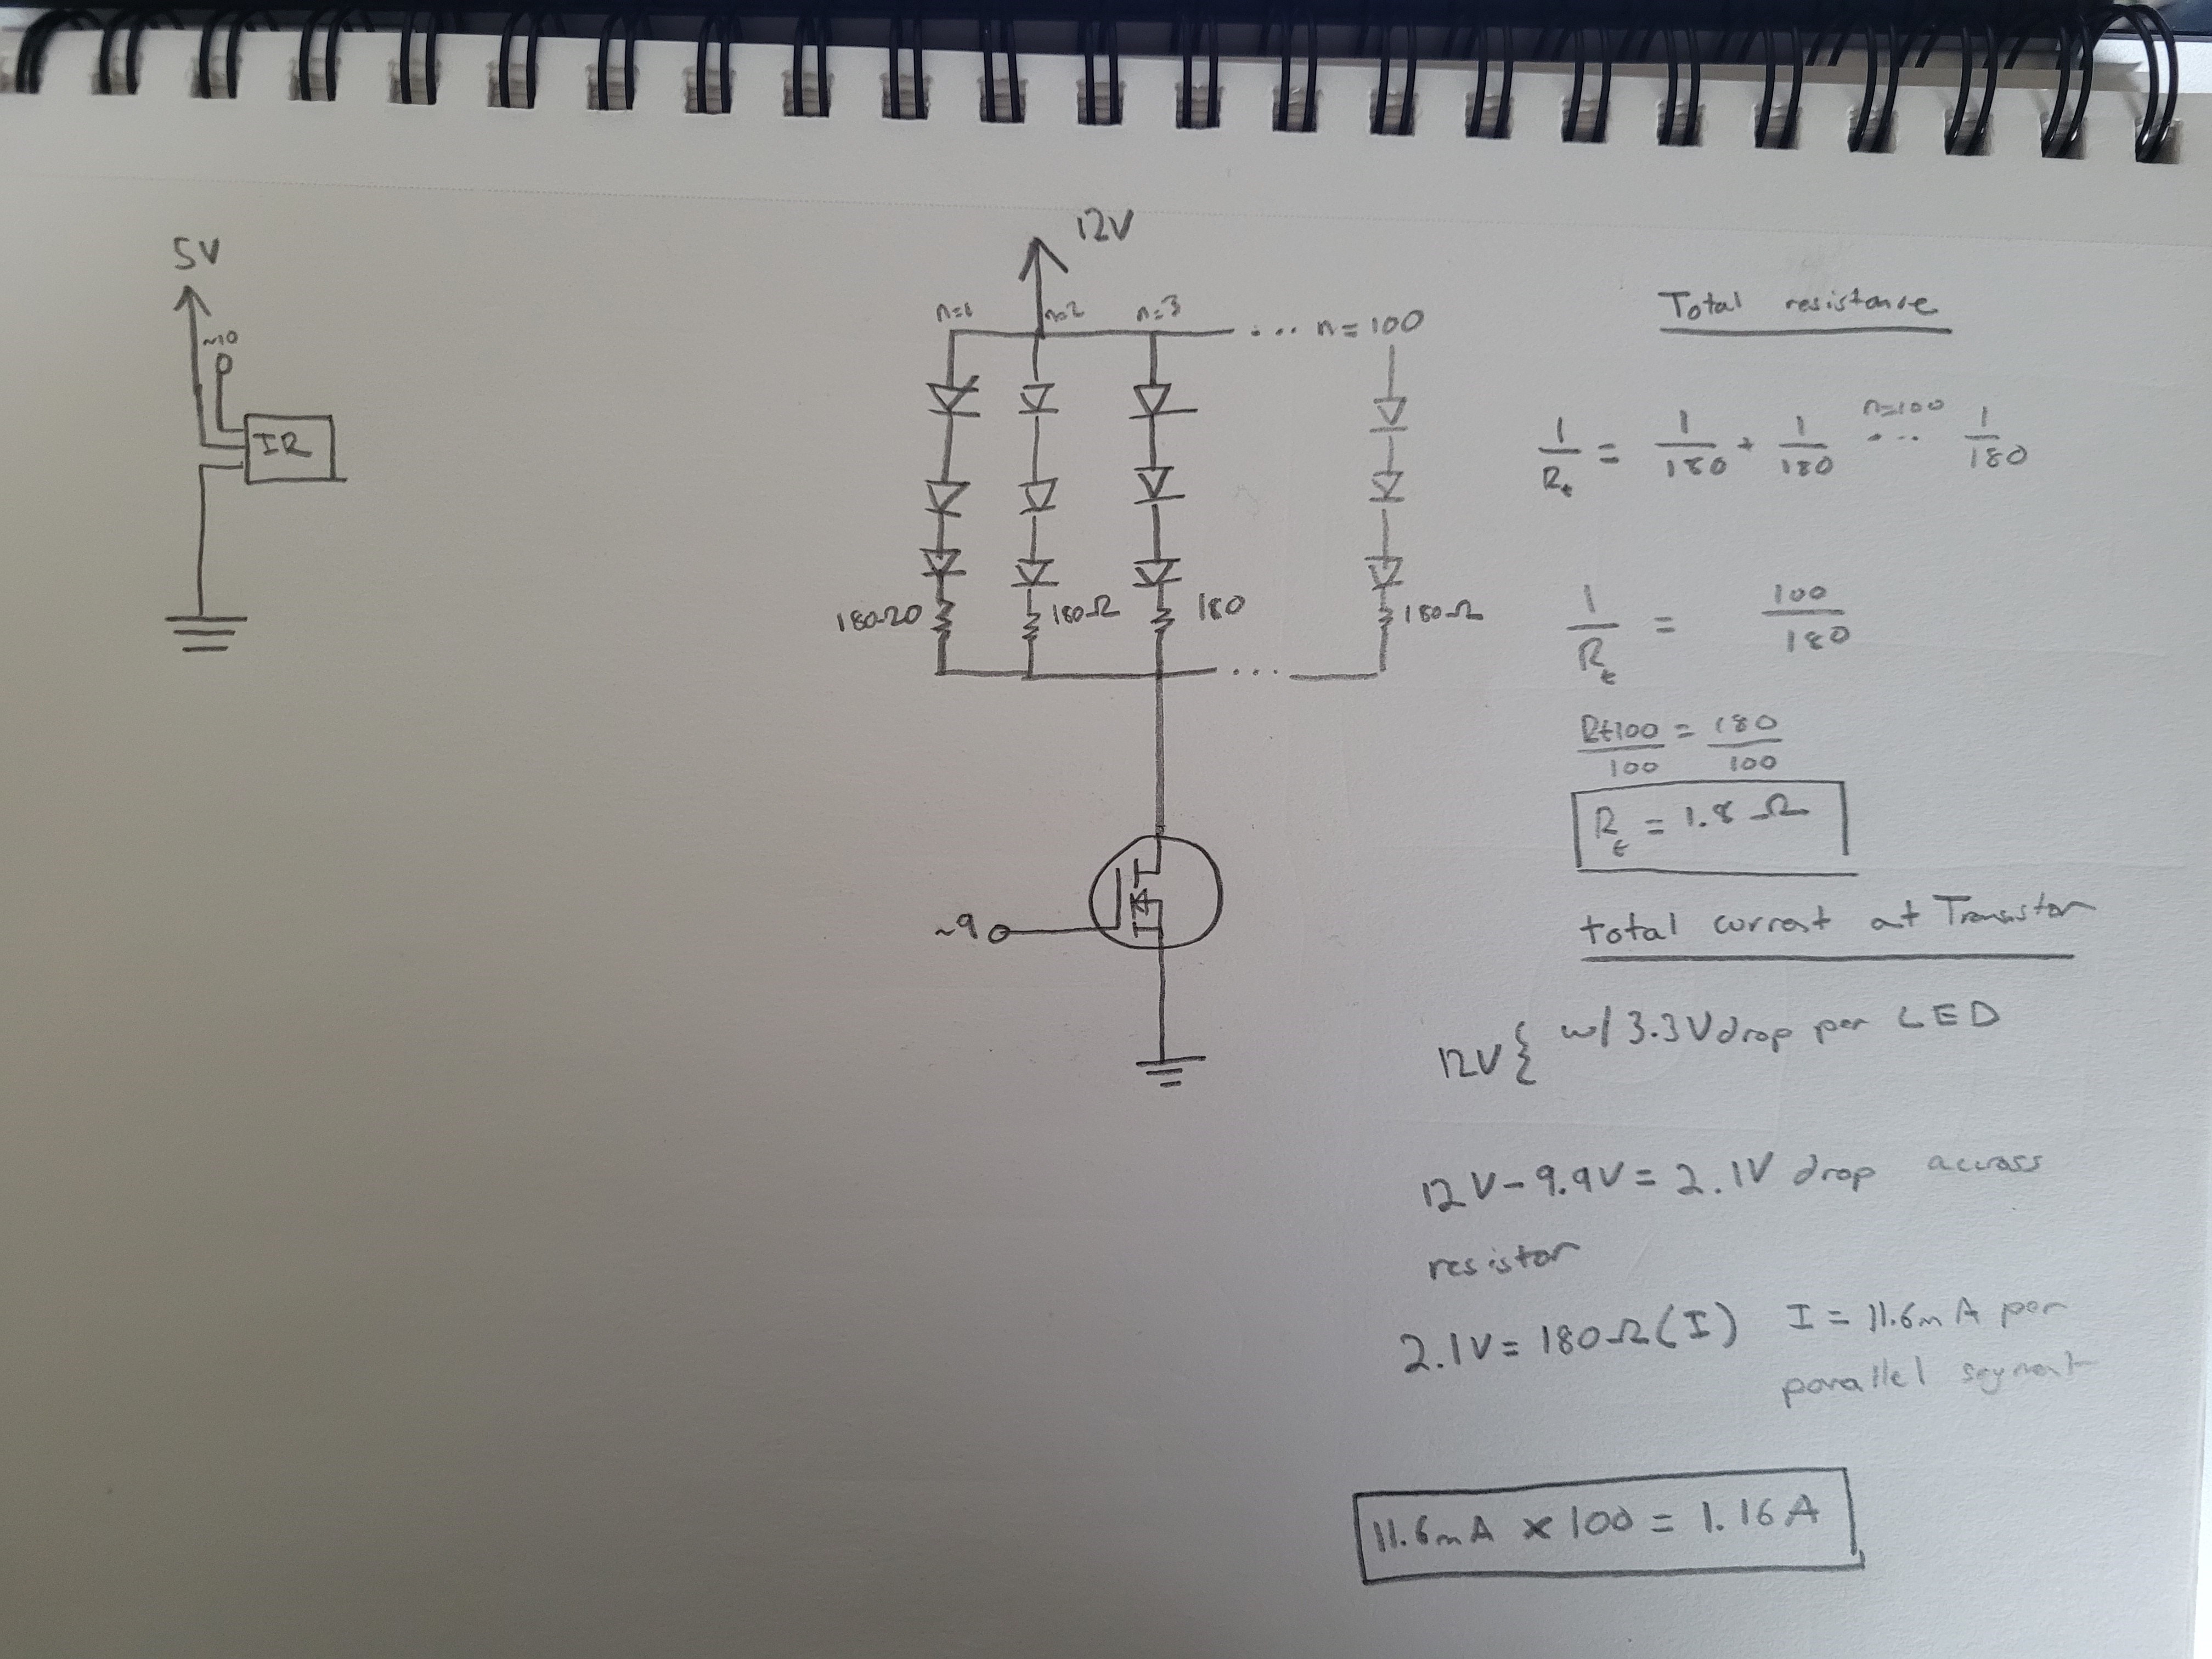 5V
~10
IR
12V
n=1 n=2 n=3 ... n=100
180Ω 180Ω 180 180Ω
...
~9
Total resistance
1/Rt = 1/180 + 1/180 n=100 ... 1/180
1/Rt = 100/180
Rt100/100 = 180/100
Rt = 1.8 Ω
total current at Transistor
12V { w/ 3.3V drop per LED
12V - 9.9V = 2.1V drop accross
resistor
2.1V = 180Ω(I) I = 11.6mA per
parallel segment
11.6mA × 100 = 1.16A